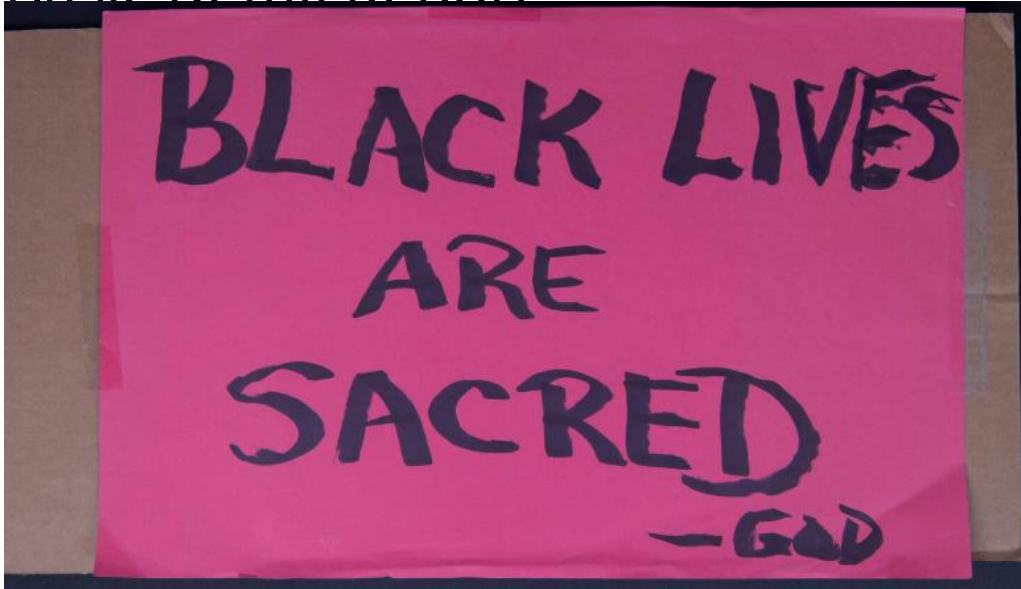 BLACK LIVES
ARE
SACRED
—GOD